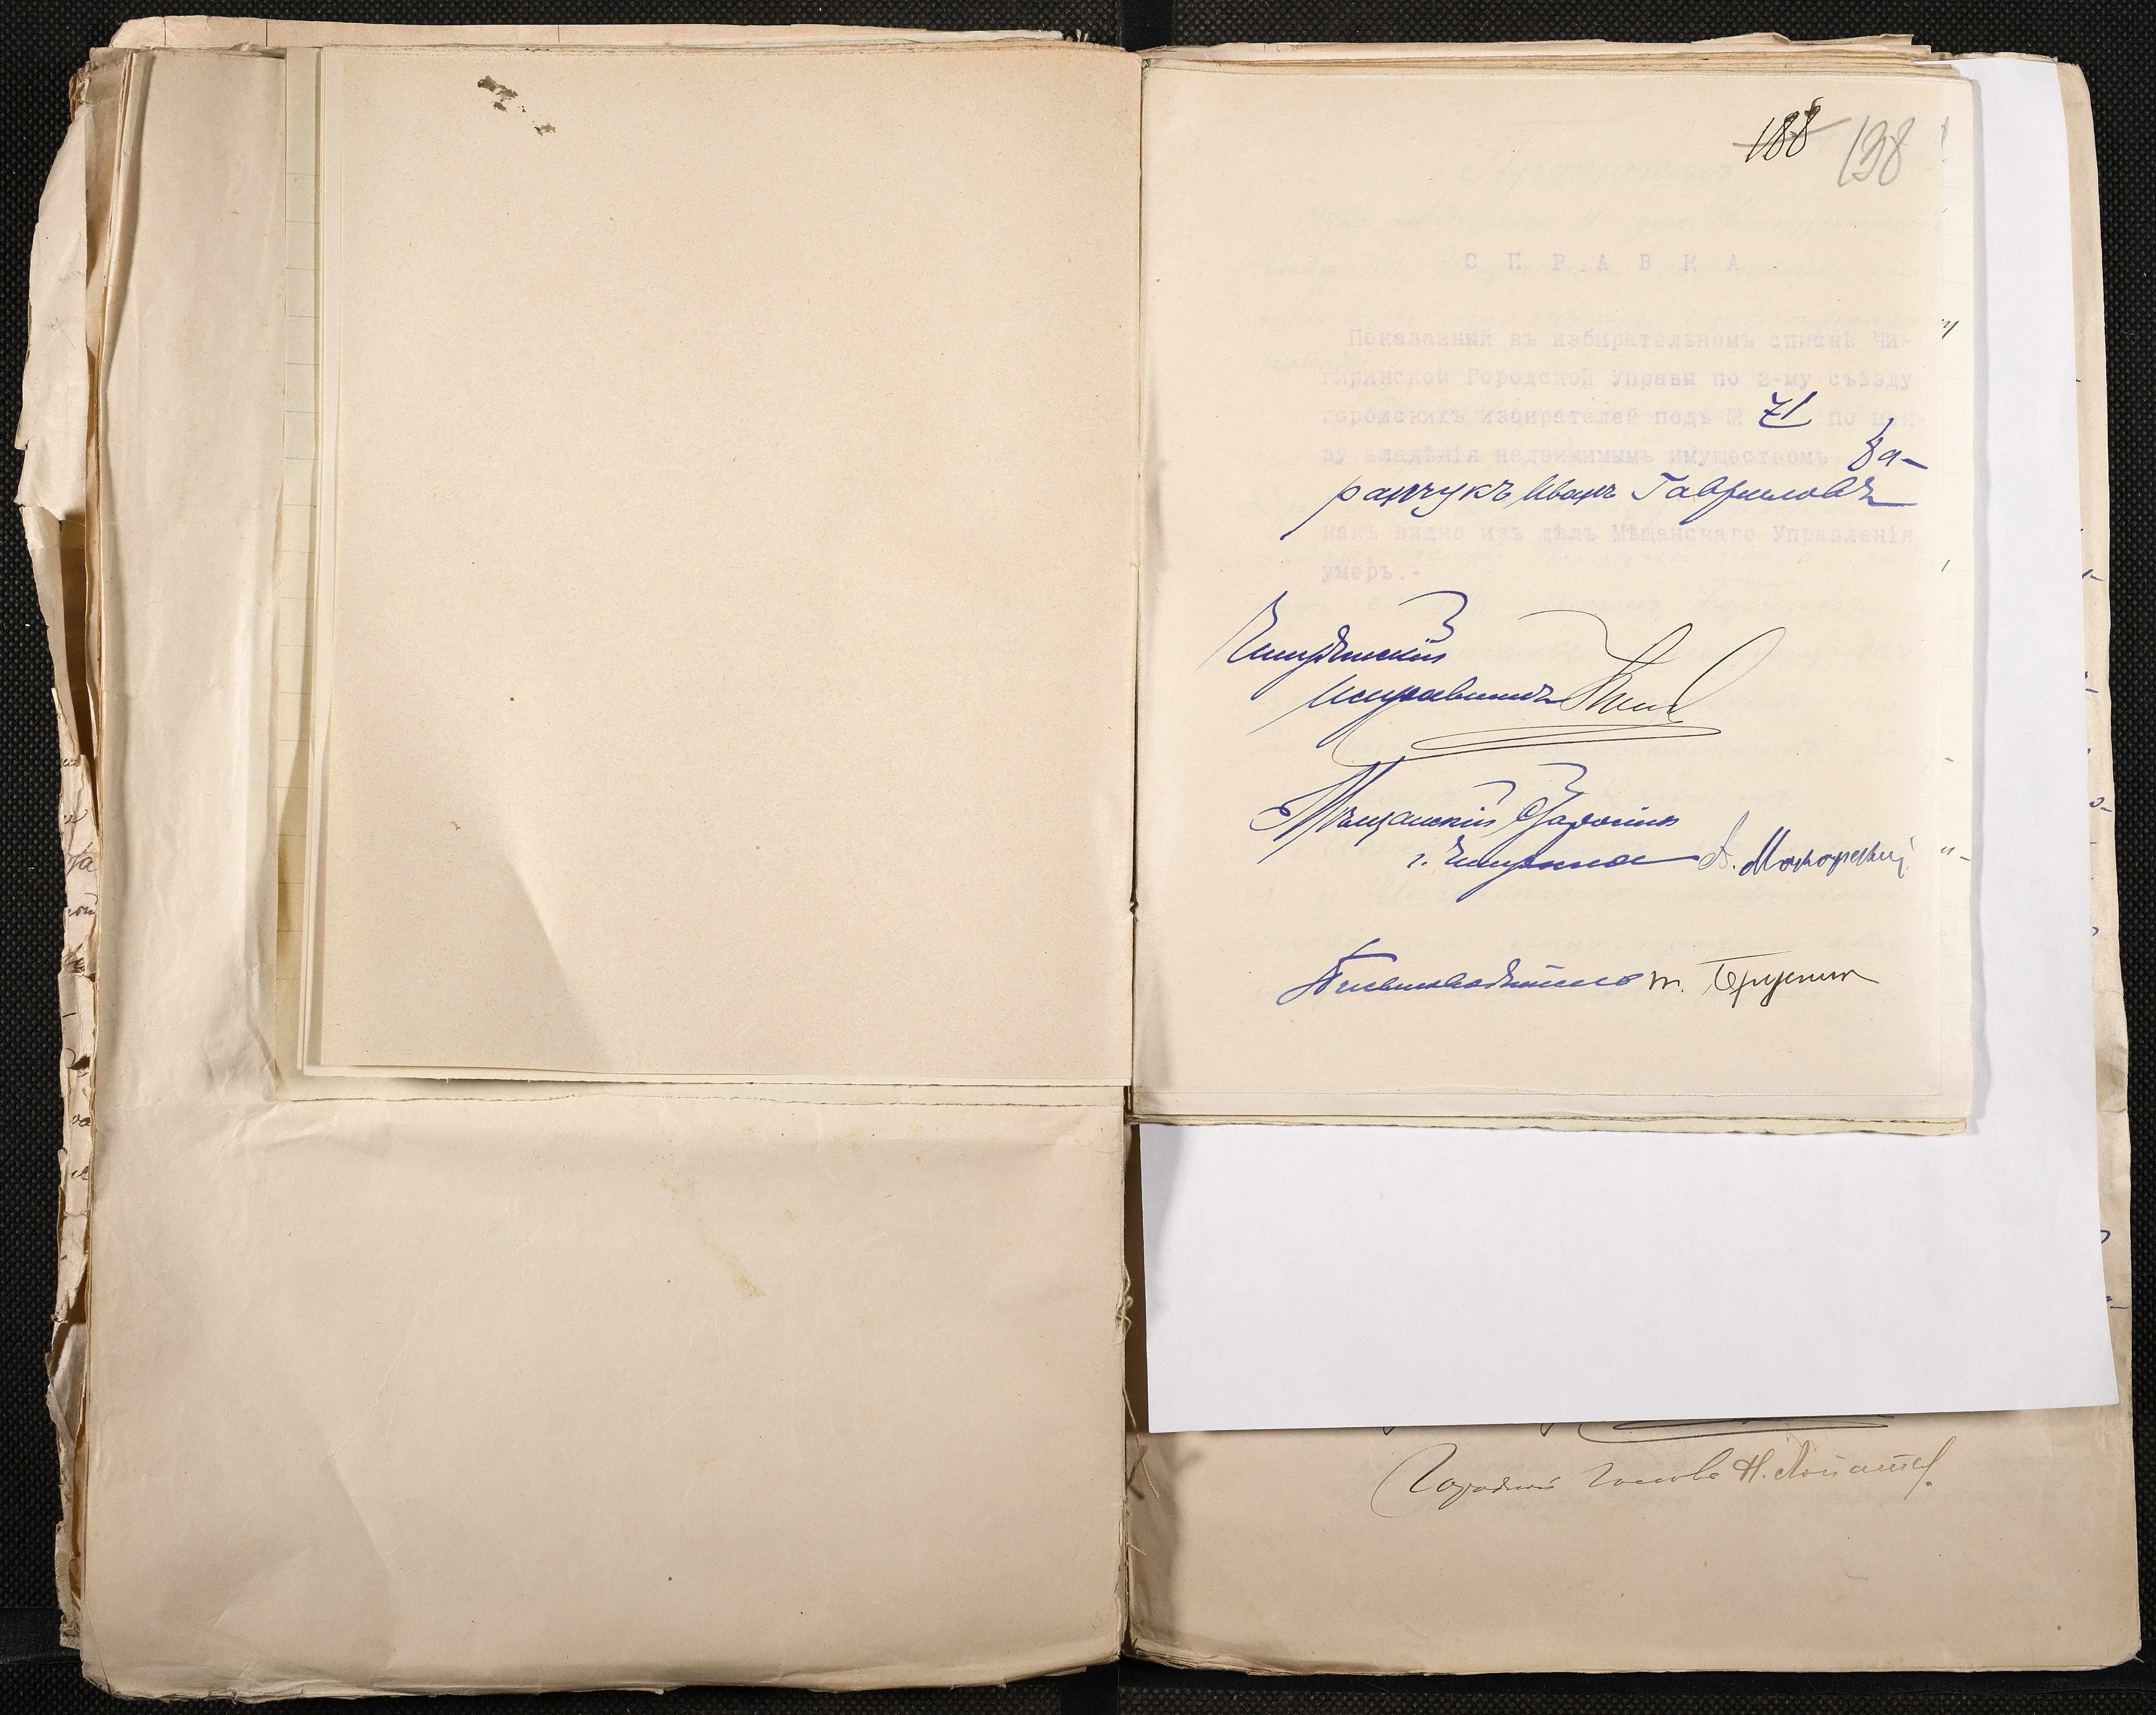 188 138
СПРАВКА.
Показанный въ избирательномъ спискѣ Чи-
гиринской Городской Управы по 2-му съѣзду
городскихъ избирателей подъ № 71 по цен-
зу владѣнія недвижимымъ имуществомъ За-
ранчукъ Иванъ Гавриловъ
какъ видно изъ дѣлъ Мѣщанскаго Управленія
умеръ.-
Чигиринскій
Исправникъ
Мѣщанскій Староста
г. Чигирина А.
Письмоводитель
Городской Голова Н.